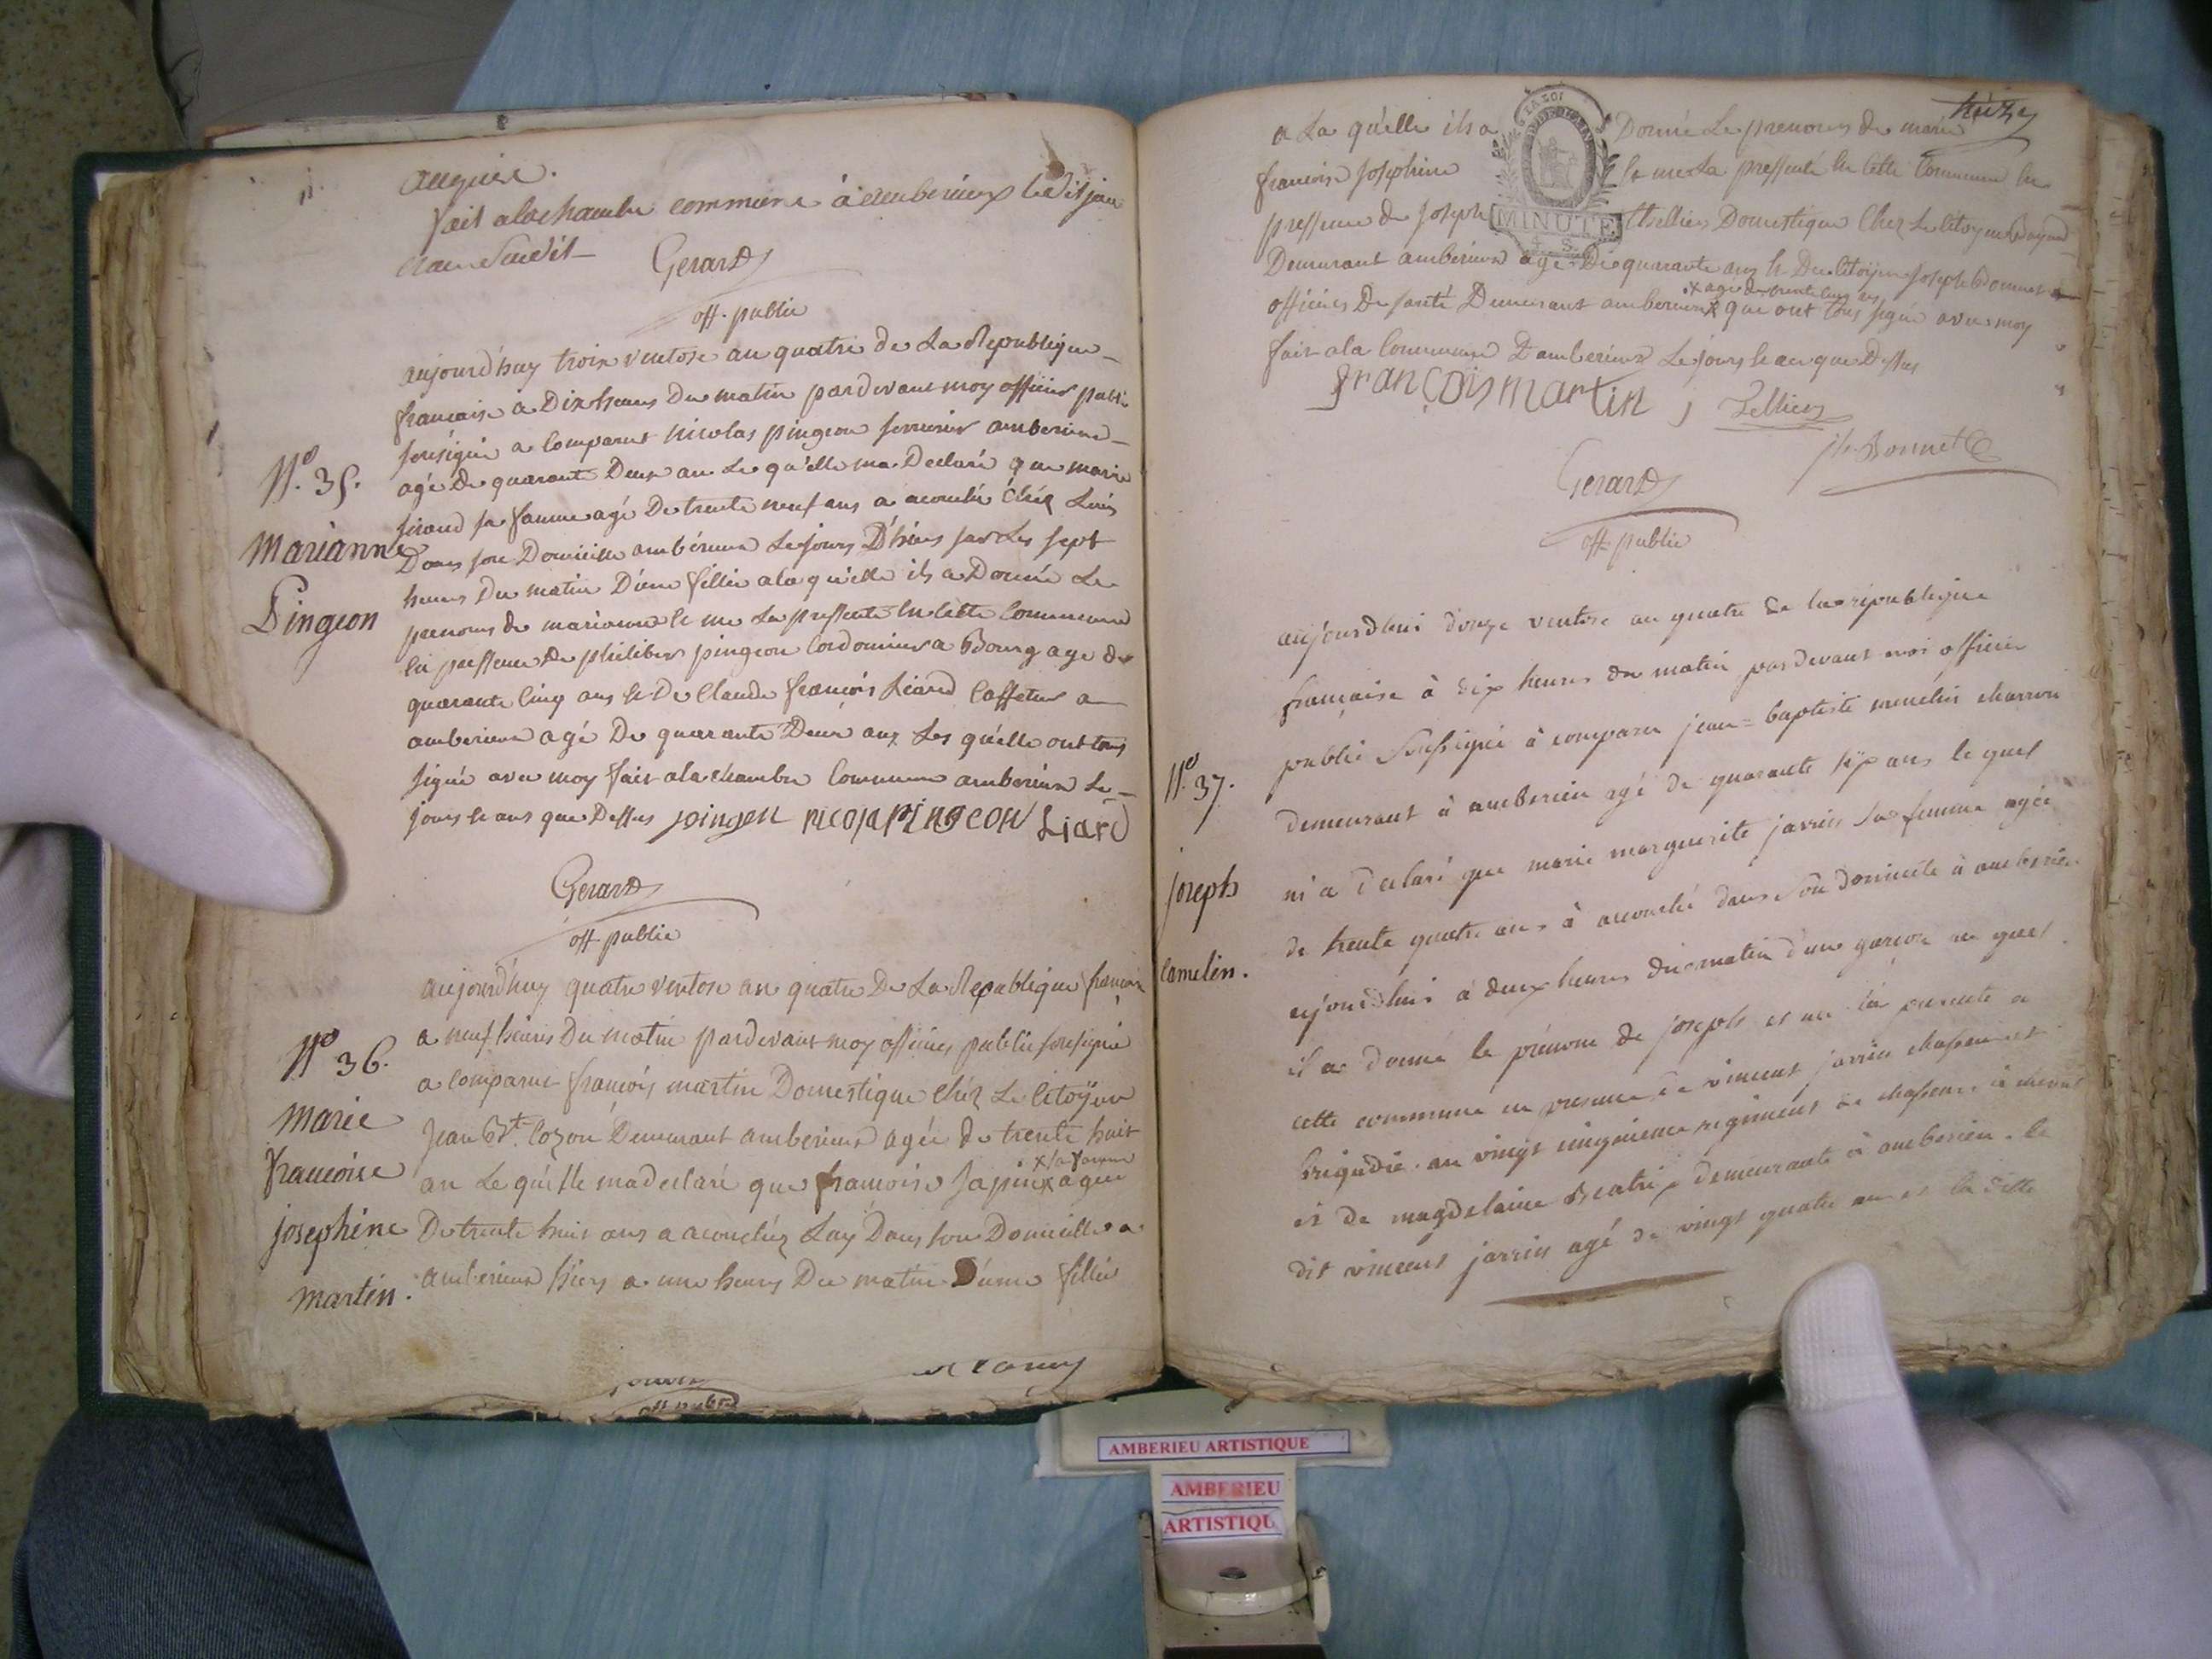 fait a la chambre commune à amberieux ledit jour
Gerard
off. public
aujourd'huy trois ventose an quatre de La Republique
francaise a Dix heures Du matin pardevant moy officier public
sousigné a Comparut nicolas pingeon serrurier amberieux
agé De quarante Deux an Le qu'elle ma Declaré que marie
sa famme agé De trente neuf ans a acouché Chéz Luis
Dans son Domicille ambérieux Le jours D'hiers sur Les sept
heures Du matin D'une fillie a la qu'elle ils a Donné Le
prenoms de marianne et me La pressenté En Cette Commune
En pressence De philibert pingeon Cordonnier a Bourg age de
quarante Cinq ans et De Claude françois Liard Caffetier a
amberieux agé De quarante Deux ans Les qu'elle ont tous
signé avec moy fait a la chambre Commune amberieux Le
jours et ans que Dessus pingon nicola Pingeon Liard
Nº. 35.
Marianne
Pingeon
Gerard
off. public
aujourd'huy quatre ventose an quatre De La Republique francoise
a neuf heures Du matin pardevant moy officier public sousigné
a Comparut françois martin Domestique Chéz Le Citoÿen
Jean Bt. Cozon Demeurant amberieux agée de trente huit
an Le qu'elle ma declaré que francoise Sapin x agée
x sa famme
De trente huit ans a acouchéz Luy Dans son Domicille a
amberieux hiers a une heures Du matin D'une fillie
Nº 36.
Marie
francoise
josephine
martin.
off public
treize
a La qu'elle ils a Donné Le prenoms de marie
francoise Josephine et me La pressenté En Cette Commune En
pressence de Joseph Thelliere Domestique Chez Le Citoyen
MINUTE
Demeurant amberieux agé De quarante ans et Du Citoÿen Joseph Bonnet
x agé de trente Cinq ans
officier De santé Demeurant amberieux x que ont tous signé avec moy
fait a la Commune D'amberieux Le jours et an que Dessus
françois martin j Tellier
Jh Bonnet
Gerard
off. public
aujourdhui douze ventose an quatre de la république
française à dix heures du matin pardevant moi officier
public soussigné à comparu jean=baptiste camelin charron
demeurant à amberieu agé de quarante six ans le quel
m'a declaré que marie marguerite jarrin sa femme agée
de trente quatre ans à accouché dans son domicile à amberieu
aujourdhui à deux heures du matin d'un garçon au quel
il a donné le prénom de joseph et me l'a presenté a
cette commune en presence de vincent jarrin chasseur et
brigadié au vingt cinquieme regiment de chasseurs à cheval
et de magdelaine Beatrix demeurante à amberieu. le
dit vincent jarrin agé de vingt quatre an et la ditte
Nº. 37.
joseph
Camelin.
AMBERIEU ARTISTIQUE
AMBERIEU
ARTISTIQU